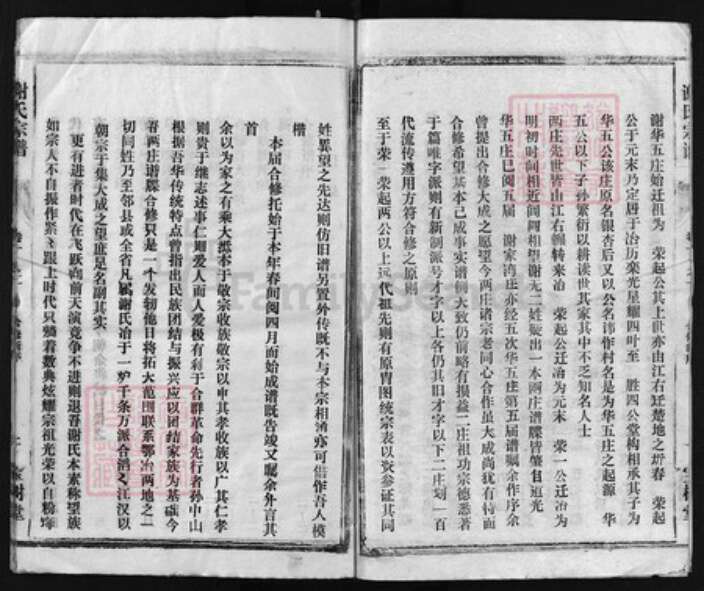 谢氏宗谱
谢华五庄始迁祖为　荣起公其上世亦由江右迁楚地之　春　荣起
公于元末乃定居于冶历栾光星耀四叶至　胜四公堂构相承其子为
华五公该庄原名银杏后又以公名讳作村名是为华五庄之起源　华
五公以下子孙繁衍以耕读世其家其中不乏知名人士
两庄先世皆由江右辗转来冶　荣起公迁冶为元末　荣一公迁冶为
明初时间相近闾阎相望谢无二姓礙出一本两庄谱牒皆肇自道光
华五庄已阅五届　谢家湾庄亦经五次华五庄第五届谱嘱余作序余
曾提出合修大成之愿望今两庄诸宗老同心合作虽大成尚犹有待而
合修希望基本已成事实谱例大致仍前略有损益二庄祖功宗德悉著
于篇唯字派则有新制派号才字以上各仍其旧才字以下二庄划一百
代流传遵用方符合修之原则
至于荣一荣起两公以上远代祖先则有原胄图统宗表以资参证其同
姓异望之先达则仿旧谱另置外传既不与本宗相淆亦可借作吾人模
楷
本届合修托始于本年春间阅四月而始成谱既告竣又嘱余弁言其
首
余以为家之有乘大抵本于敬宗收族敬宗以申其孝收族以广其仁孝
则贵于继志述事仁则爱人而人爱极有利于合群革命先行者孙中山
根据吾华传统特点曾指出民族团结与振兴应以团结家族为基础今
吾两庄谱牒合修只是一个发轫他日将拓大范围联系鄂冶两地之一
切同姓乃至邻县或全省凡属谢氏冶于一炉千条万派合酒江汉以
朝宗于集大成之望庶足名副其实
更有进者时代在飞跃向前天演竞争不进则退吾谢氏本素称望族
如宗人不自振作紧紧跟上时代只躺着数典炫耀宗祖光荣以自粉饰
宝树堂